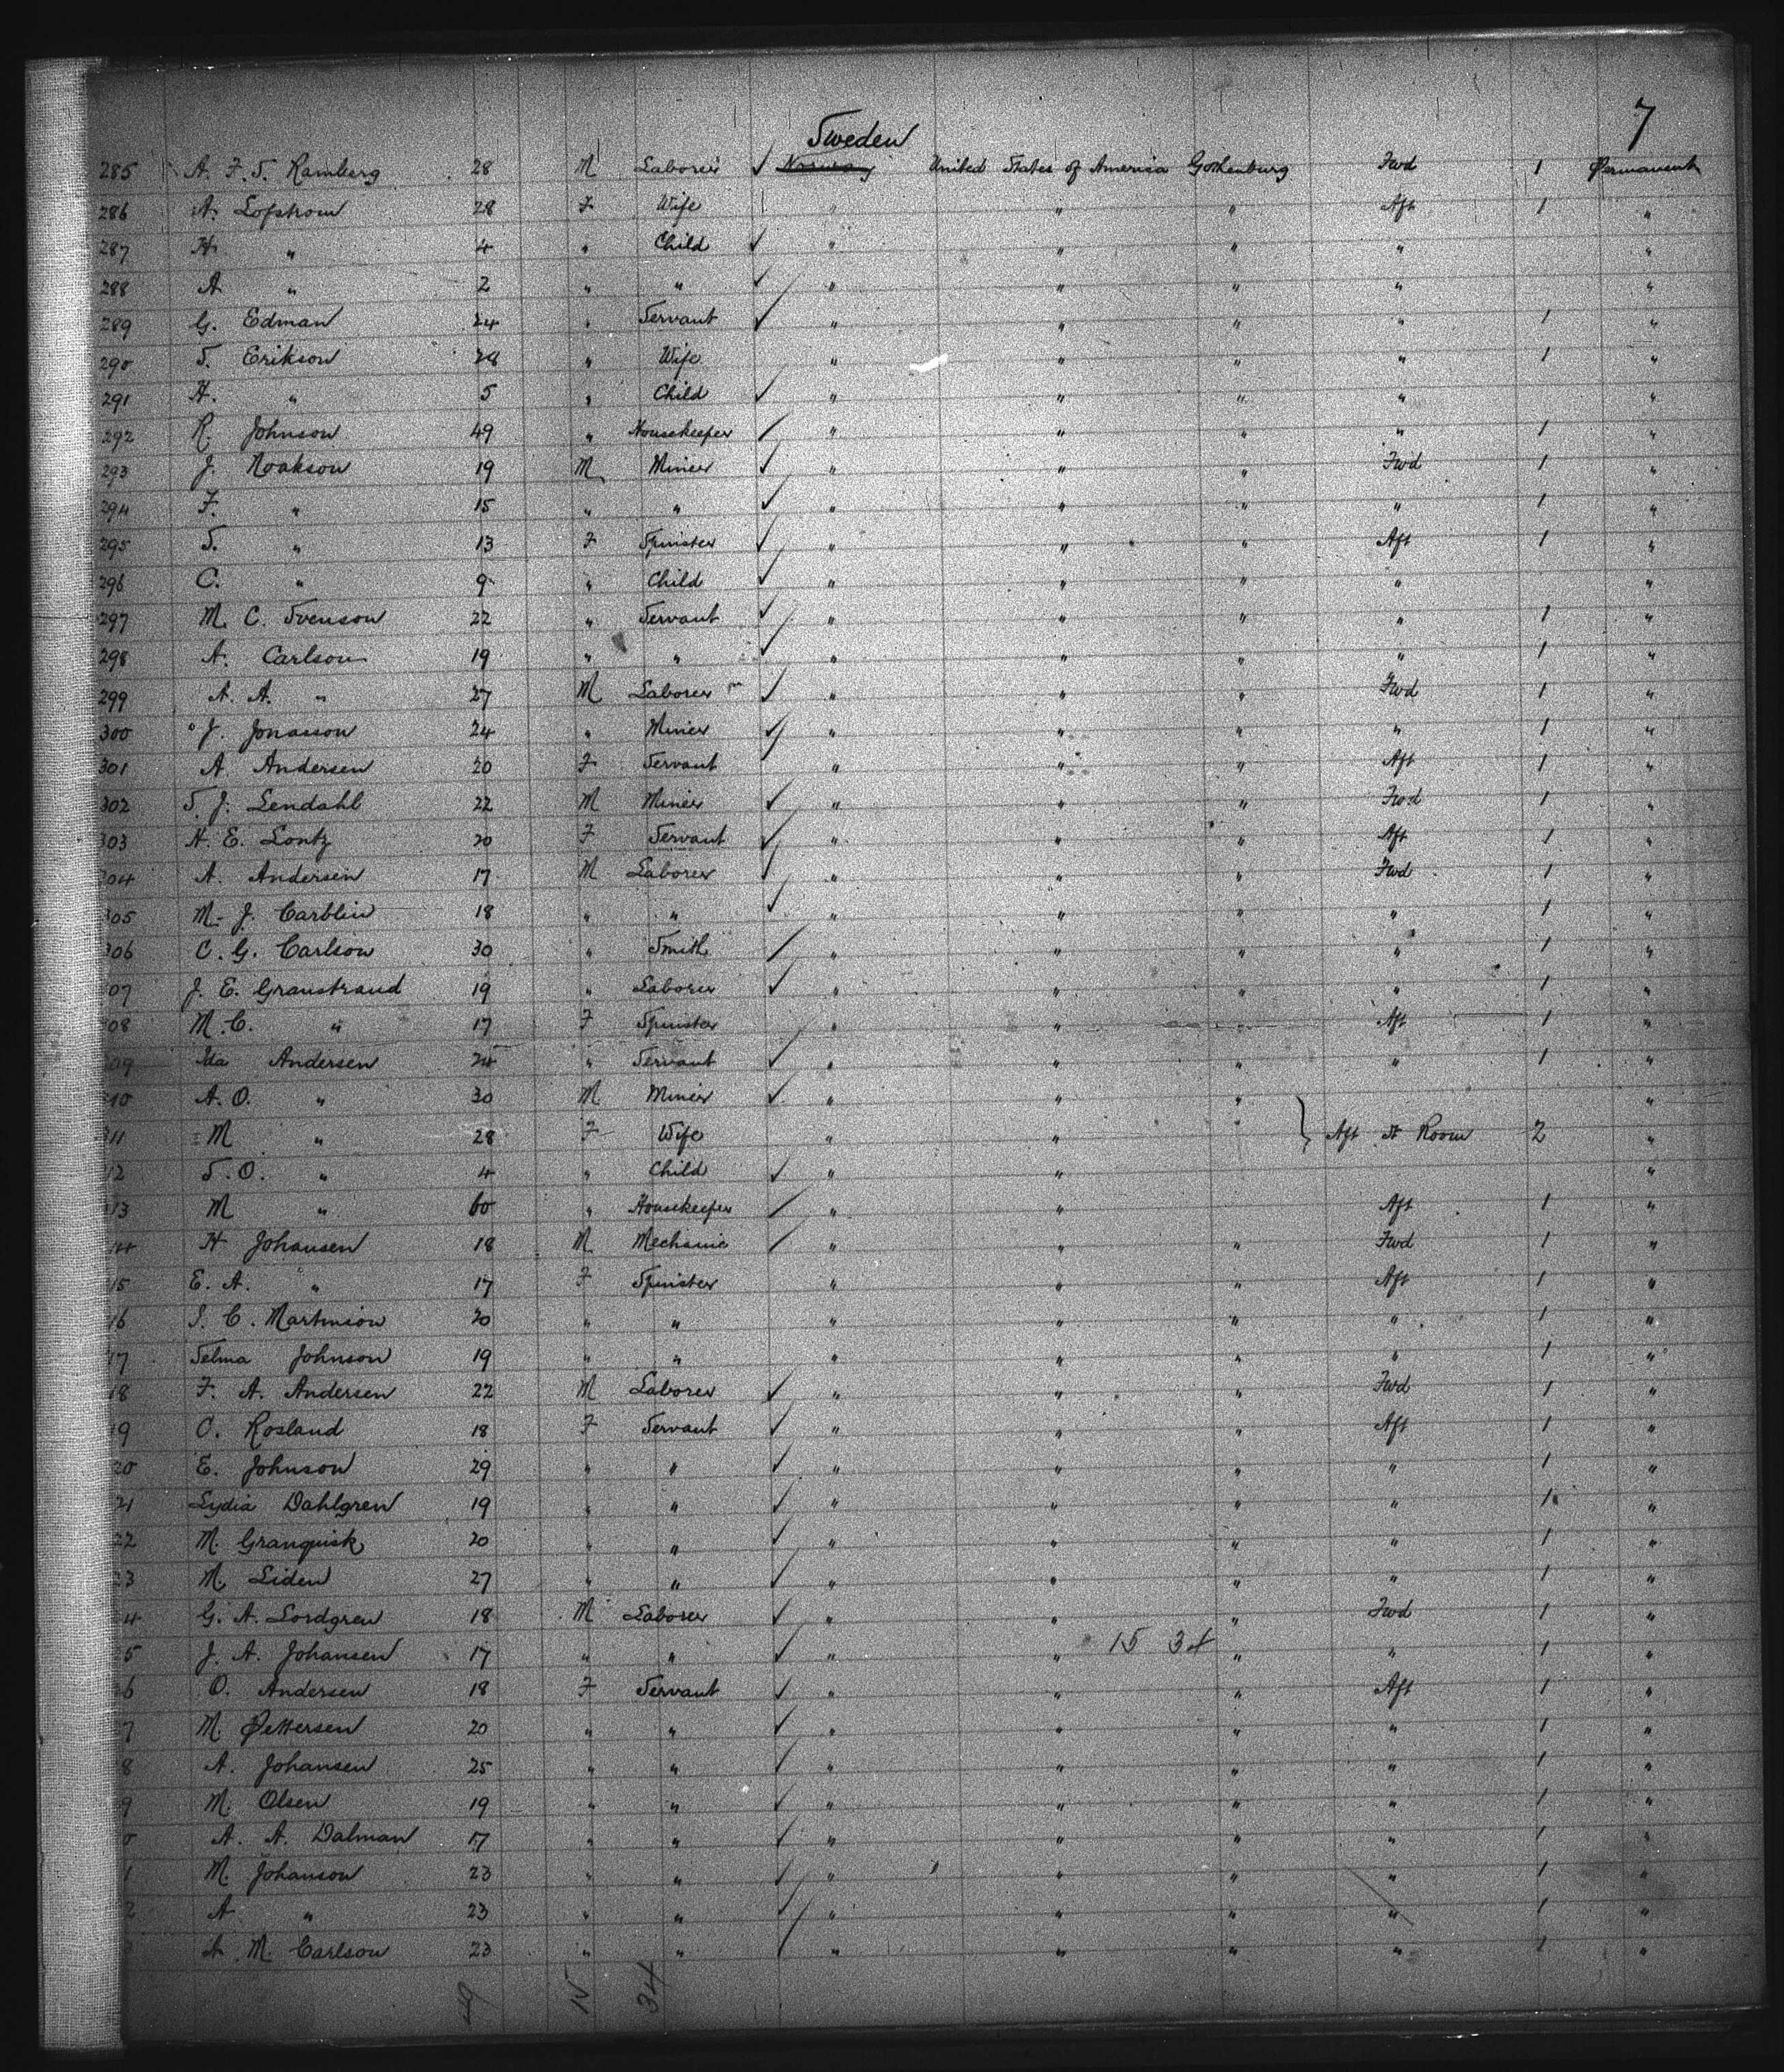 7
Sweden
285 A. F. S. Ramberg 28 M Laborer ✓ Norway United States of America Gothenburg Fwd 1 Permanent
286 A. Lofstrom 28 F Wife " " " Aft 1 "
287 H. " 4 " Child ✓ " " " " "
288 A. " 2 " " ✓ " " " " "
289 G. Edman 24 " Servant ✓ " " " " 1 "
290 S. Erikson 28 " Wife " " " " 1 "
291 H. " 5 " Child ✓ " " " " "
292 R. Johnson 49 " Housekeeper ✓ " " " " 1 "
293 J. Noakson 19 M Miner ✓ " " " Fwd 1 "
294 F. " 15 " " ✓ " " " " 1 "
295 S. " 13 F Spinster ✓ " " " Aft 1 "
296 C. " 9 " Child ✓ " " " " "
297 M. C. Svenson 22 " Servant ✓ " " " " 1 "
298 A. Carlson 19 " " ✓ " " " " 1 "
299 A. A. " 27 M Laborer ✓ " " " Fwd 1 "
300 J. Jonasson 24 " Miner ✓ " " " " 1 "
301 A. Andersen 20 F Servant " " " Aft 1 "
302 S. J. Lendahl 22 M Miner ✓ " " " Fwd 1 "
303 H. E. Lontz 20 F Servant ✓ " " " Aft 1 "
304 A. Andersen 17 M Laborer ✓ " " " Fwd 1 "
305 M. J. Carblin 18 " " ✓ " " " " 1 "
306 C. G. Carlson 30 " Smith ✓ " " " " 1 "
07 J. E. Granstrand 19 " Laborer ✓ " " " " 1 "
08 M. C. " 17 F Spinster " " " Aft 1 "
09 Ida Andersen 24 " Servant ✓ " " " " 1 "
10 A. O. " 30 M Miner ✓ " " " "
11 M " 28 F Wife " " " } Aft St Room 2 "
12 S. O. " 4 " Child ✓ " " "
13 M " 60 " Housekeeper ✓ " " Aft 1 "
14 H Johansen 18 M Mechanic ✓ " " " Fwd 1 "
15 E. A. " 17 F Spinster " " " Aft 1 "
16 S. C. Martinson 20 " " " " " " 1 "
17 Selma Johnson 19 " " " " " " 1 "
18 F. A. Andersen 22 M Laborer ✓ " " " Fwd 1 "
19 O. Rosland 18 F Servant ✓ " " " Aft 1 "
20 E. Johnson 29 " " ✓ " " " " 1 "
21 Lydia Dahlgren 19 " " ✓ " " " " 1 "
22 M. Granquist 20 " " ✓ " " " " 1 "
23 M. Liden 27 " " ✓ " " " " 1 "
4 G. A. Lordgren 18 M Laborer ✓ " " " Fwd 1 "
5 J. A. Johansen 17 " " ✓ " " 15 34 " " 1 "
6 O. Andersen 18 F Servant ✓ " " " Aft 1 "
7 M. Pettersen 20 " " ✓ " " " " 1 "
8 A. Johansen 25 " " ✓ " " " " 1 "
9 M. Olsen 19 " " ✓ " " " " 1 "
0 A. A. Dalman 17 " " ✓ " " " " 1 "
1 M. Johanson 23 " " ✓ " " " " 1 "
2 A " 23 " " ✓ " " " " 1 "
A. M. Carlson 23 " " ✓ " " " " 1 "
49 15 34